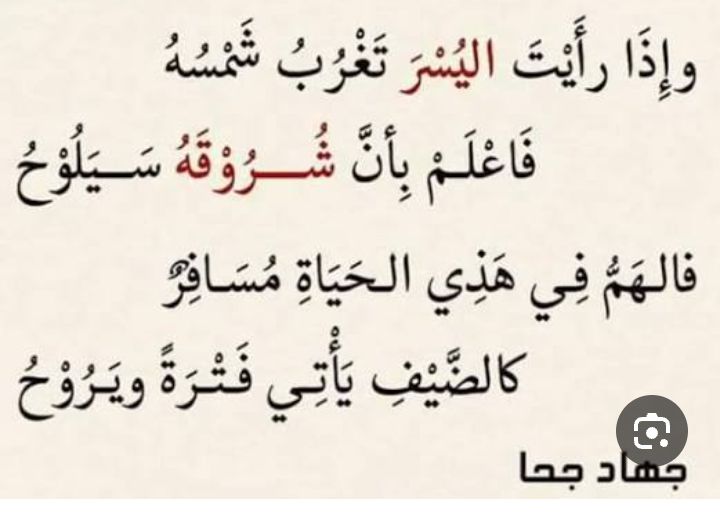 وإِذَا رأَيْتَ اليُسْرَ تَغْرُبُ شَمْسُهُ
فَاعْلَمْ بِأنَّ شُـــرُوْقَهُ سَـــيَلُوْحُ
فالـهَمُّ فِـي هَذِي الـحَيَاةِ مُسَـافِرٌ
كالضَّيْفِ يَأْتِـي فَـتْـرَةً ويَـرُوْحُ
جهاد جحا